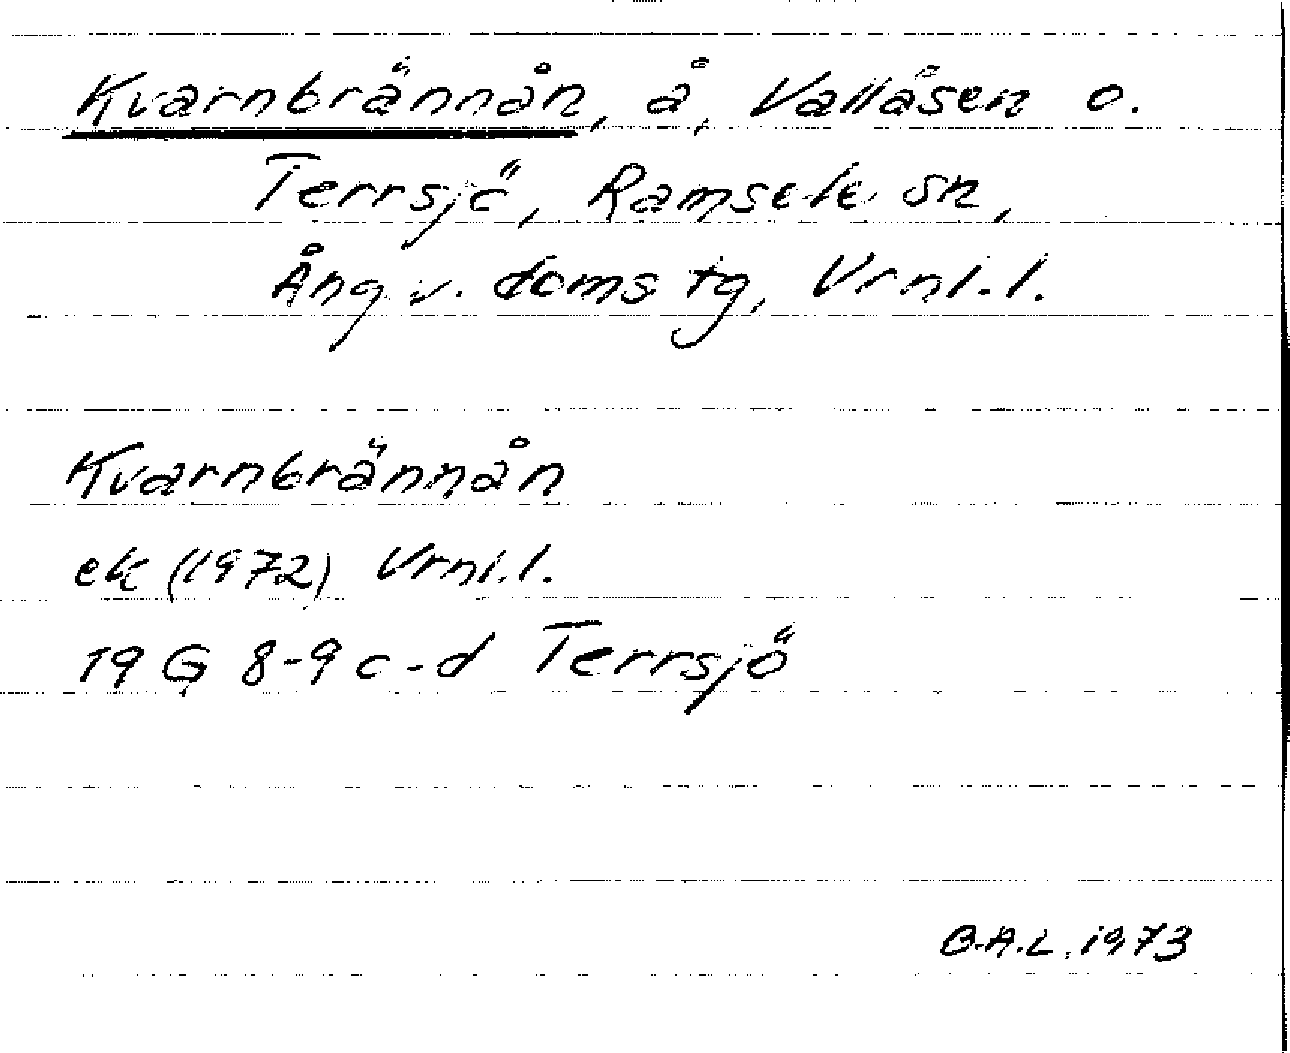 Kvarnbrännån, å, Vallåsen o.
Terrsjö, Ramsele sn,
Ång. v. doms tg, Vrnl. l.
Kvarnbrännån
ek (1972) Vrnl. l.
19 G 8-9 c-d Terrsjö
B.A.L. 1973